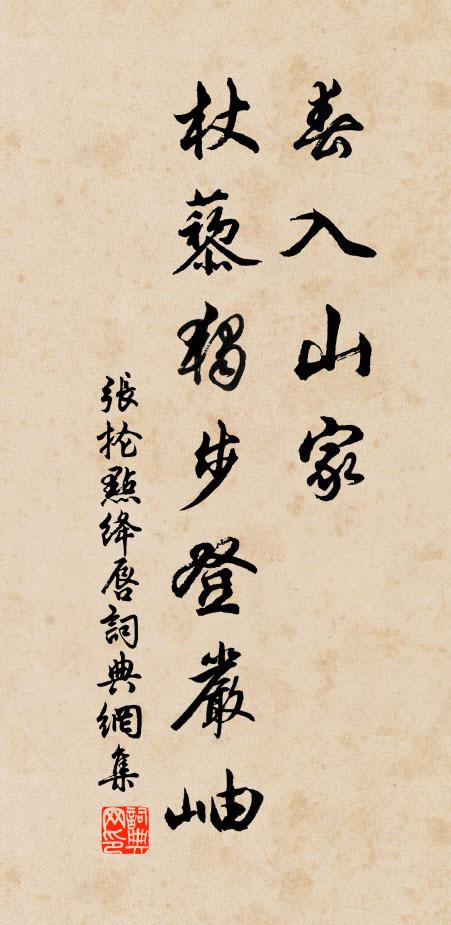 春入山家
杖藜獨步登嚴岫
張掄點絳唇詞典網集
詞典网印